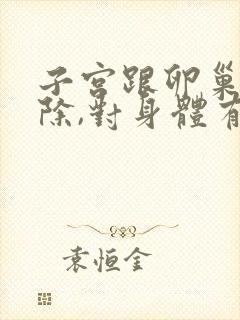 子宮跟卵巢
除,對身體有
袁恒金